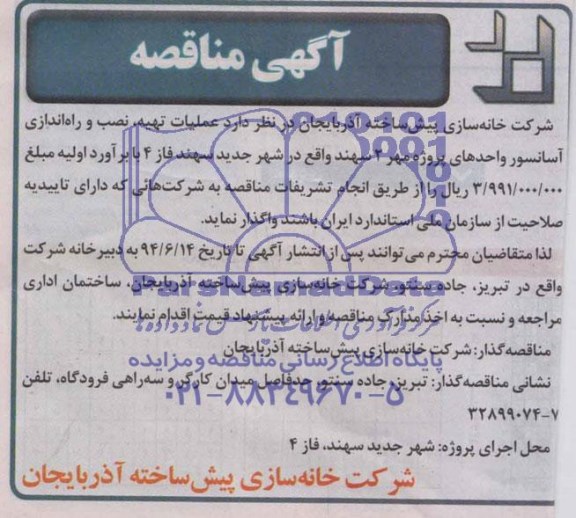 آگهی مناقصه
شرکت خانه‌سازی پیش‌ساخته آذربایجان در نظر دارد عملیات تهیه، نصب و راه‌اندازی
آسانسور واحدهای پروژه مهر ۴ سهند واقع در شهر جدید سهند فاز ۴ با برآورد اولیه مبلغ
۳/۹۹۱/۰۰۰/۰۰۰ ریال را از طریق انجام تشریفات مناقصه به شرکت‌هائی که دارای تاییدیه
صلاحیت از سازمان ملی استاندارد ایران باشند واگذار نماید.
لذا متقاضیان محترم می‌توانند پس از انتشار آگهی تا تاریخ ۹۴/۶/۱۴ به دبیرخانه شرکت
واقع در تبریز، جاده سنتو، شرکت خانه‌سازی پیش‌ساخته آذربایجان، ساختمان اداری
ParsNamadData
مراجعه و نسبت به اخذ مدارک مناقصه و ارائه پیشنهاد قیمت اقدام نمایند.
مناقصه‌گذار: شرکت خانه‌سازی پیش‌ساخته آذربایجان
پایگاه اطلاع رسانی مناقصه و مزایده
نشانی مناقصه‌گذار: تبریز، جاده سنتو، حدفاصل میدان کارگر و سه‌راهی فرودگاه، تلفن
۰۲۱-۸۸۳۴۹۶۷۰-۵
۳۲۸۹۹۰۷۴-۷
محل اجرای پروژه: شهر جدید سهند، فاز ۴
شرکت خانه‌سازی پیش‌ساخته آذربایجان